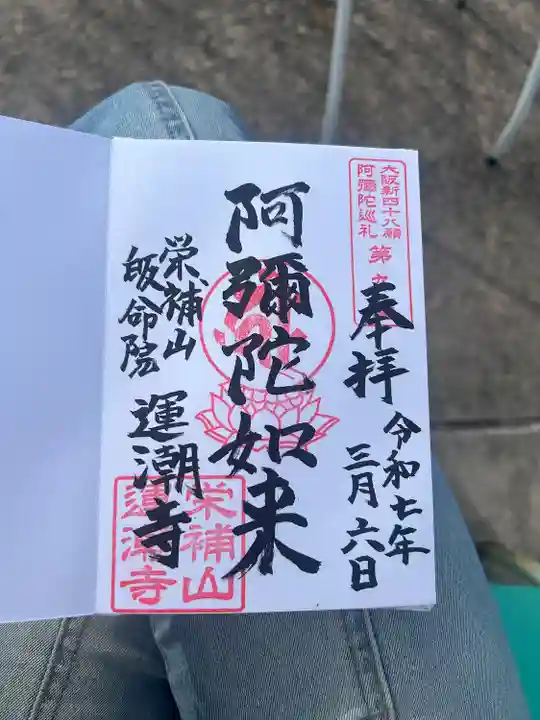 大阪新四十八願
阿彌陀巡礼
第
奉拝
令和七年
三月六日
阿彌陀如来
栄補山
皈命院
運潮寺
栄補山
運潮寺